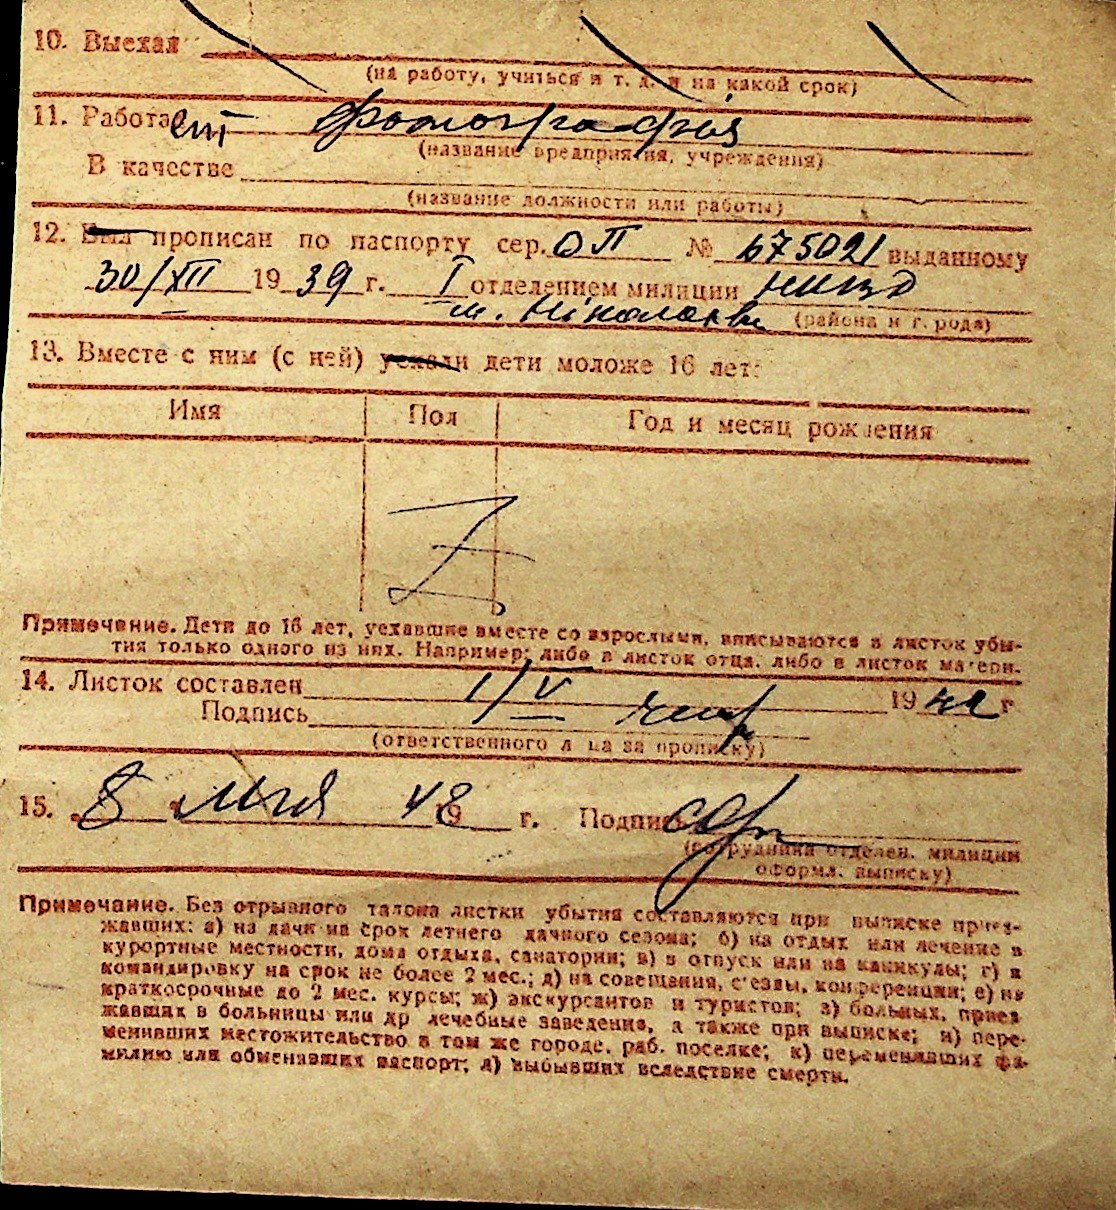 10. Выехал
(на работу, учиться и т. д. и на какой срок)
11. Работает фотография
(название предприятия, учреждения)
В качестве
(название должности или работы)
12. Был прописан по паспорту сер. ОП № 675021 выданному
30/XII 1939 г. I отделением милиции НКВД
м. Ніколаєві (района и города)
13. Вместе с ним (с ней) уехали дети моложе 16 лет:
Имя Пол Год и месяц рождения
Примечание. Дети до 16 лет, уехавшие вместе со взрослыми, вписываются в листок убы-
тия только одного из них. Например: либо в листок отца, либо в листок матери.
14. Листок составлен 1/V 19 г
Подпись
(ответственного лица за прописку)
15. 8 мая 48 г. Подпись
(сотрудника отделен. милиции
оформл. выписку)
Примечание. Без отрывного талона листки убытия составляются при выписке приез-
жавших: а) на дачи на срок летнего дачного сезона; б) на отдых или лечение в
курортные местности, дома отдыха, санатории; в) в отпуск или на каникулы; г) в
командировку на срок не более 2 мес.; д) на совещания, съезды, конференции; е) на
краткосрочные до 2 мес. курсы; ж) экскурсантов и туристов; з) больных, приез
жавших в больницы или др лечебные заведения, а также при выписке; и) пере-
менивших местожительство в том же городе, раб. поселке; к) переменивших фа-
милию или обменавших паспорт; л) выбывших вследствие смерти.